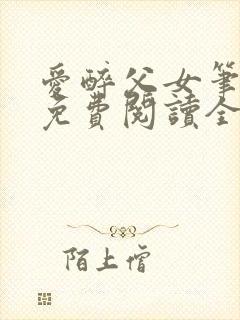 愛醉父女筆
免費閱讀全
陌上僧